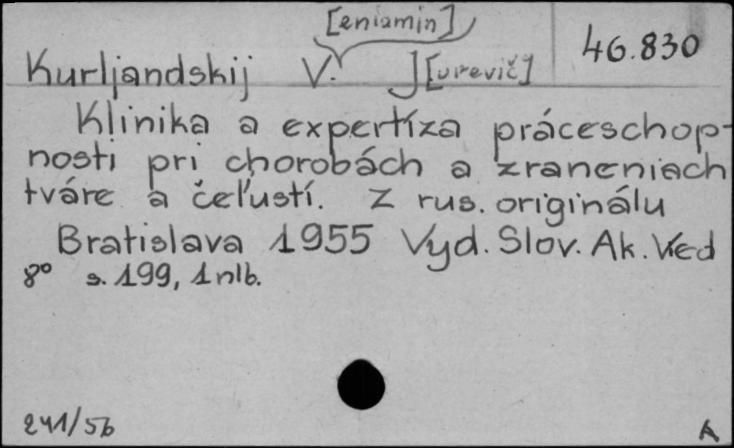 [eniamin]
46.830
Kurljandskij V. J[urevič]
Klinika a expertíza práceschop-
nosti pri chorobách a zraneniach
tváre a čeľustí. Z rus. originálu
Bratislava 1955 Vyd. Slov. Ak. Vied
8° s. 199, 1 nlb.
241/56
A